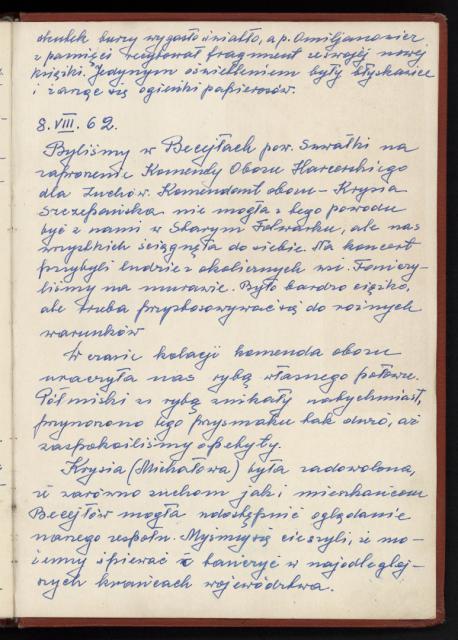 skutek burzy wygasło światło, a p. Omiljanowicz
z pamięci recytował fragment ze swojej nowej
książki. Jedynym oświetleniem były błyskawice
i żarzące się ogieńki papierosów.
8.VIII.62.
Byliśmy w Becejłach pow. Suwałki na
zaproszenie Komendy Obozu Harcerskiego
dla zuchów. Komendant obozu - Krysia
Szczepańska nie mogła z tego powodu
być z nami w Starym Folwarku, ale nas
wszystkich ściągnęła do siebie. Na koncert
przybyli ludzie z okolicznych wsi. Tańczy-
liśmy na murawie. Było bardzo ciężko,
ale trzeba przystosowywać się do różnych
warunków
W czasie kolacji komenda obozu
uraczyła nas rybą własnego połowu.
Półmiski z rybą znikały natychmiast,
przynoszono tego przysmaku tak dużo, aż
zaspokoiliśmy apetyty.
Krysia (Michałowa) była zadowolona,
że zarówno zuchom jak i mieszkańcom
Becejłów mogła udostępnić oglądanie
naszego zespołu. Myśmy się cieszyli, że mo-
żemy śpiewać i tańczyć w najodleglej-
szych krańcach województwa.